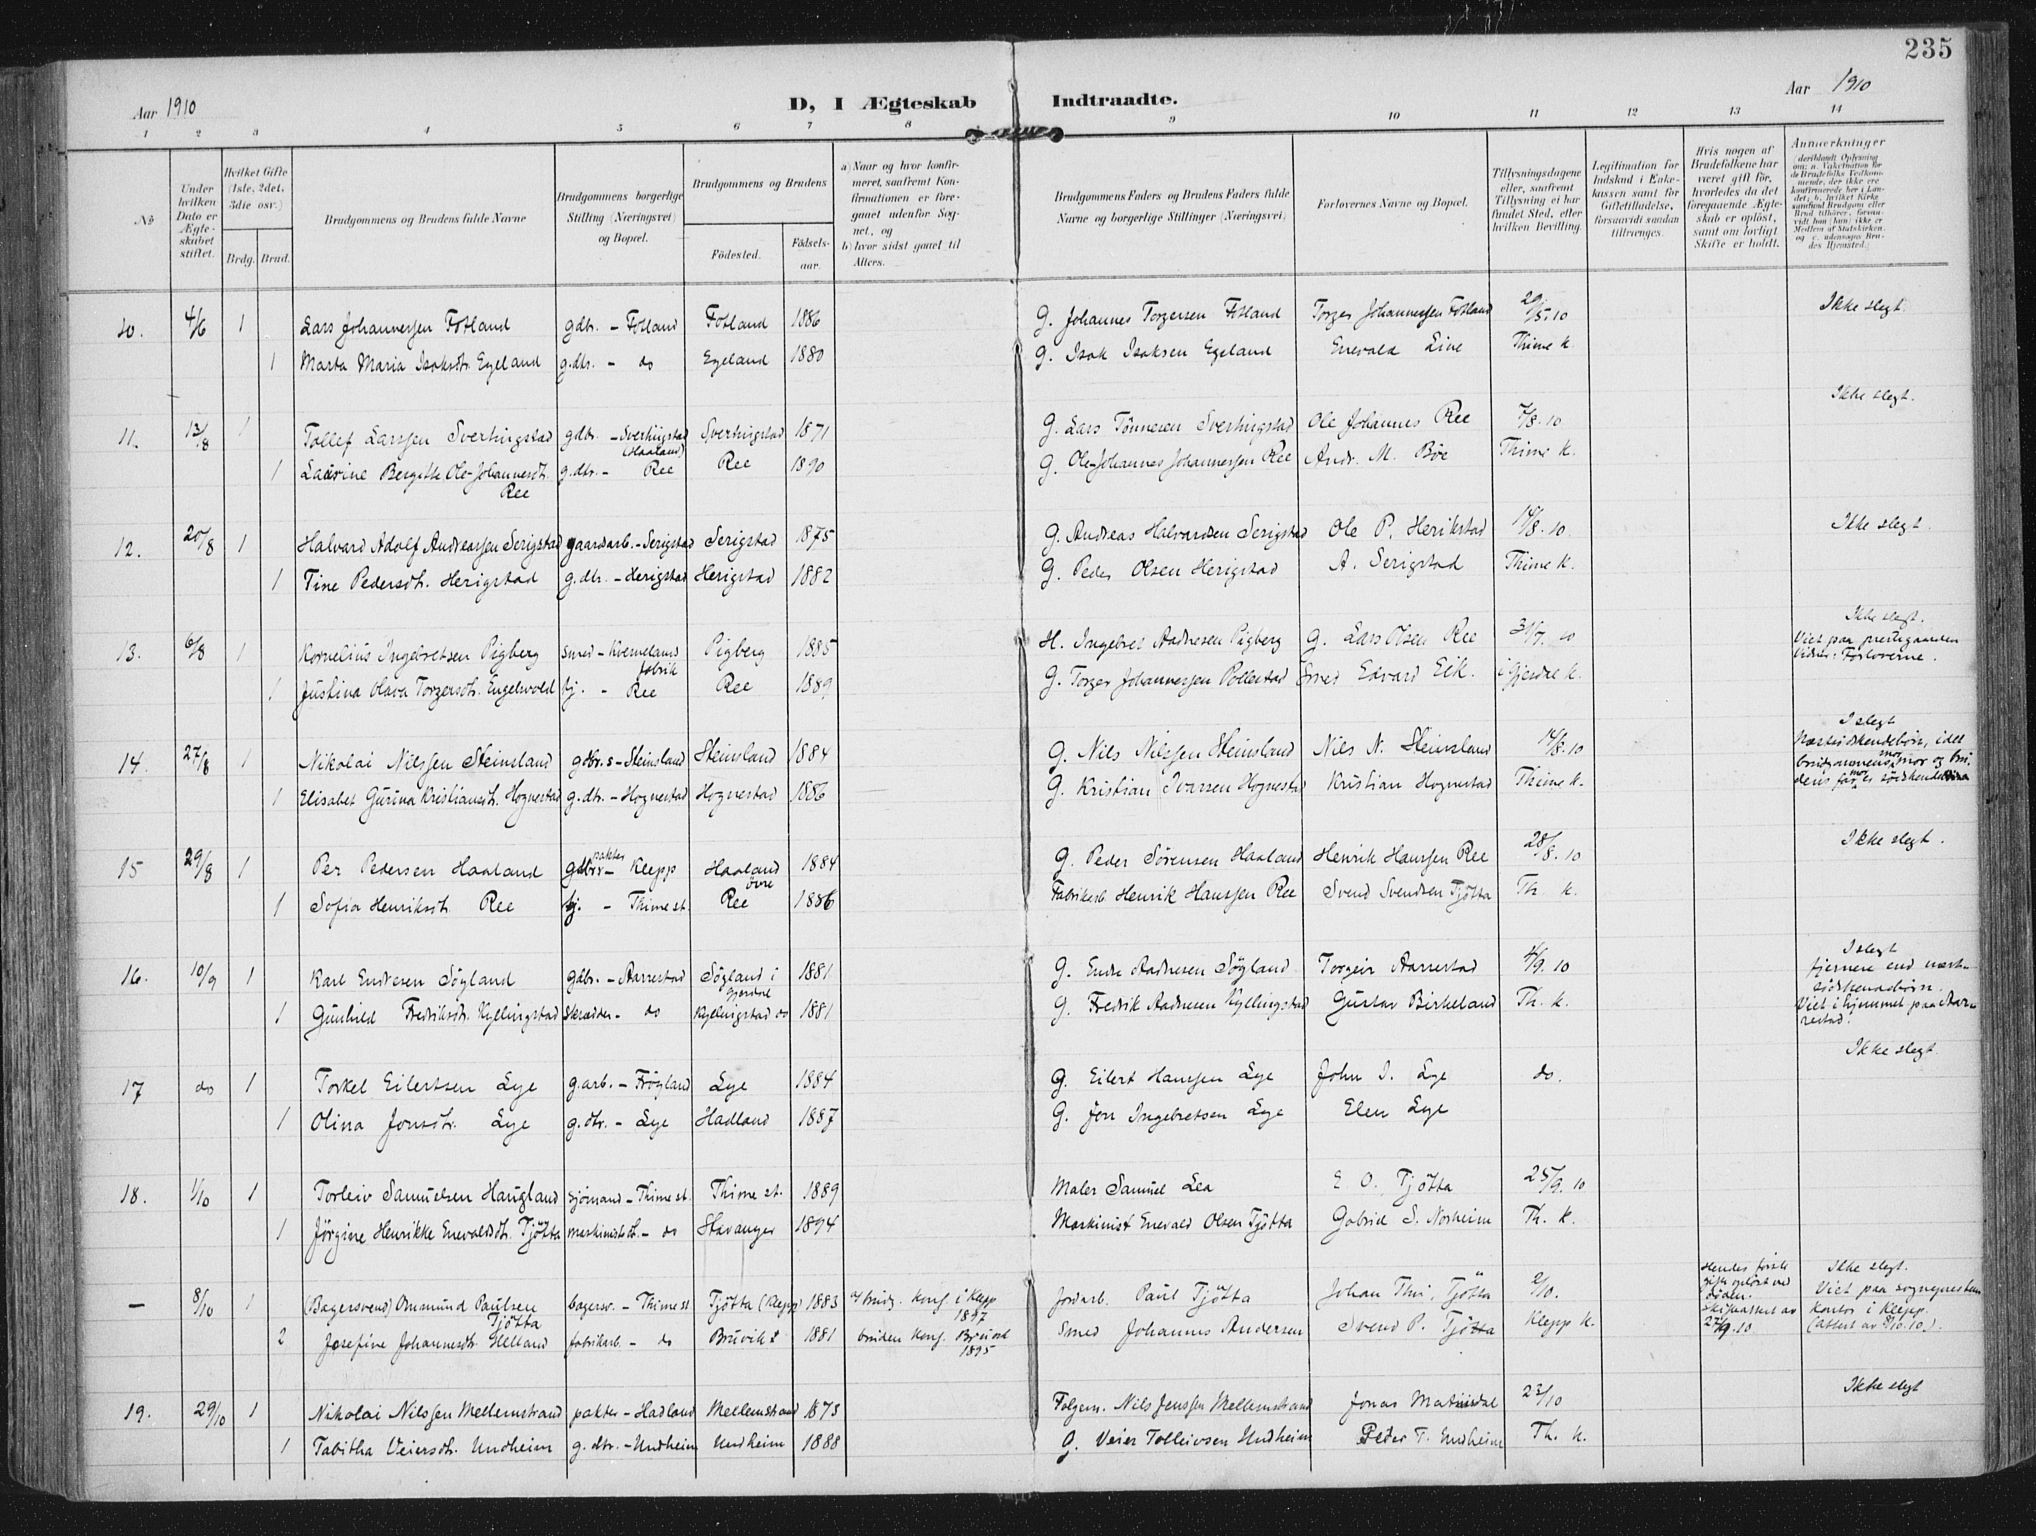 235
Aar 1910
D, I Ægteskab Indtraadte.
Aar 1910
1 2 3 4 5 6 7 8 9 10 11 12 13 14
No
Under hvilken Dato er Ægteskabet stiftet.
Hvilket Gifte (1ste, 2det, 3die osv.)
Brdg. Brud.
Brudgommens og Brudens fulde Navne
Brudgommens borgerlige Stilling (Næringsvei) og Bopæl.
Brudgommens og Brudens
Fødested.
Fødselsaar.
a) Naar og hvor konfirmeret, saafremt Konfirmationen er foregaaet udenfor Sognet, og
b) hvor sidst gaaet til Alters.
Brudgommens Faders og Brudens Faders fulde Navne og borgerlige Stillinger (Næringsvei)
Forlovernes Navne og Bopæl.
Tillysningsdagene eller, saafremt Tillysning ei har fundet Sted, efter hvilken Bevilling.
Legitimation for Indskud i Enkekassen samt for Giftetilladelse, forsaavidt saadan tiltrænges.
Hvis nogen af Brudefolkene har været gift før, hvorledes da det foregaaende Ægteskab er opløst, samt om lovligt Skifte er holdt.
Anmærkninger (deriblandt Oplysning om: a. Vaksination for de Brudefolks Vedkommende, der ikke ere konfirmerede her i Landet; b. hvilket Kirkesamfund Brudgom eller Brud tilhører, forsaavidt han (hun) ikke er Medlem af Statskirken, og c. udensogns Brudes Hjemsted.)
10. 4/6 1 Lars Johannessen Fotland gdbr. - Fotland Fotland 1886 G. Johannes Torgersen Fotland Torger Johannessen Fotland 29/5.10 Ikke slegt.
1 Marta Maria Isaksdt. Egeland g.dtr. - do Egeland 1880 G. Isak Isaksen Egeland Enevald Line Thime k.
11. 13/8 1 Tollef Larssen Svertingstad gdbr. - Svertingstad (Haaland) Svertingstad 1871 G. Lars Tønnesen Svertingstad Ole Johannes Ree 7/8.10 Ikke slegt.
1 Laurine Bergitte Ole-Johannesdt. Ree g.dtr. - Ree Ree 1890 G. Ole-Johannes Johannessen Ree Andr. M. Böe Thime k.
12. 20/8 1 Halvard Adolf Andreassen Serigstad gaardarb. - Serigstad Serigstad 1875 G. Andreas Halvardsen Serigstad Ole P. Herikstad 14/8.10. Ikke slegt.
1 Tine Pedersdt. Herigstad g.dtr. - Herigstad Herigstad 1882 G. Peder Olsen Herigstad A. Serigstad Thime k.
13. 6/8 1 Kornelius Ingebretsen Pigberg smed - Kvernelands fabrik Pigberg 1885 H. Ingebret Aadnesen Pigberg G. Lars Olsen Ree 31/7.10 Ikke slegt. Viet paa prestegaarden Vidner: Forloverne.
1 Justina Olava Torgersdt. Engelsvold hj. - Ree Ree 1889 G. Torger Johannessen Pollestad Smed Edvard Eik. i Gjesdal k.
14. 27/8 1 Nikolai Nilssen Steinsland gdbr.s - Steinsland Steinsland 1884 G. Nils Nilssen Steinsland Nils N. Steinsland 14/8.10 I slegt Næstsødskendebørn, idet brudgommens mormor og brudens farmor er sødskendebørn
1 Elisabet Gurina Kristiansdt. Hognestad g.dtr. - Hognestad Hognestad 1886 G. Kristian Ivarsen Hognestad Kristian Hognestad Thime k.
15 29/8 1 Per Pedersen Haaland pakter - Klepp Haaland 1884 G. Peder Sørensen Haaland Henrik Hanssen Ree 28/8.10 Ikke slegt.
1 Sofia Henriksdt. Ree hj. - Thime st. øvre Ree 1886 Fabrikarb. Henrik Hanssen Ree Svend Svendsen Tjøtta Th. k.
16. 10/9 1 Karl Endresen Søyland gdbr. - Aarrestad Søyland i Gjesdal 1881. G. Endre Aadnesen Søyland Torgeir Aarrestad 4/9.10 I slegt fjernere end næstsødskendebørn. Viet i hjemmet paa Aarrestad.
1 Gunhild Fredriksdt. Kyllingstad Skrædder - do Kyllingstad do 1881 G. Fredrik Aadnesen Kyllingstad Gustav Birkeland Th. k.
17 do 1 Torkel Eilertsen Lye g.arb. - Frøyland Lye 1884 G. Eilert Hanssen Lye John J. Lye do. Ikke slegt.
1 Olina Jonsdt. Lye g.dtr. - Lye Hadland 1887 G. Jon Ingebretsen Lye Elen Lye
18. 1/10 1 Torleiv Samuelsen Haugland sjømand - Thime st. Thime st. 1889 Maler Samuel Lea E. O. Tjøtta 25/9.10
1 Jørgine Henrikke Enevaldsdt. Tjøtta maskinistdt. - do Stavanger 1894 Maskinist Enevald Olsen Tjøtta Gabriel S. Norheim Th. k.
- 8/10 1 (Bagersvend) Ommund Paulsen Tjøtta bagersv. - Thime st Tjøtta (Klepp) 1883 brudg. konf. i Klepp 1897 Jordarb. Paul Tjøtta Johan Th. Tjøtta 2/10. Hendes første gifte opløst ved døden. Skifteattest av 27/9.10 Ikke slegt. Viet paa sogneprestens kontor i Klepp. (attest av 8/10.10).
2 Josefine Johannesdt. Helland fabrikarb. - do Bruvik 1881 bruden konf. Bruvik 1895 Smed Johannes Andersen Svend P. Tjøtta Klepp k.
19. 29/10 1 Nikolai Nilssen Mellemstrand pakter - Hadland Mellemstrand 1873 Folgem. Nils Jenssen Mellemstrand Jonas 23/10 Ikke slegt
1 Tabitha Veiersdt. Undheim g.dtr. - Undheim Undheim 1888 G. Veier Tolleivsen Undheim Peder T. Undheim Th. k.